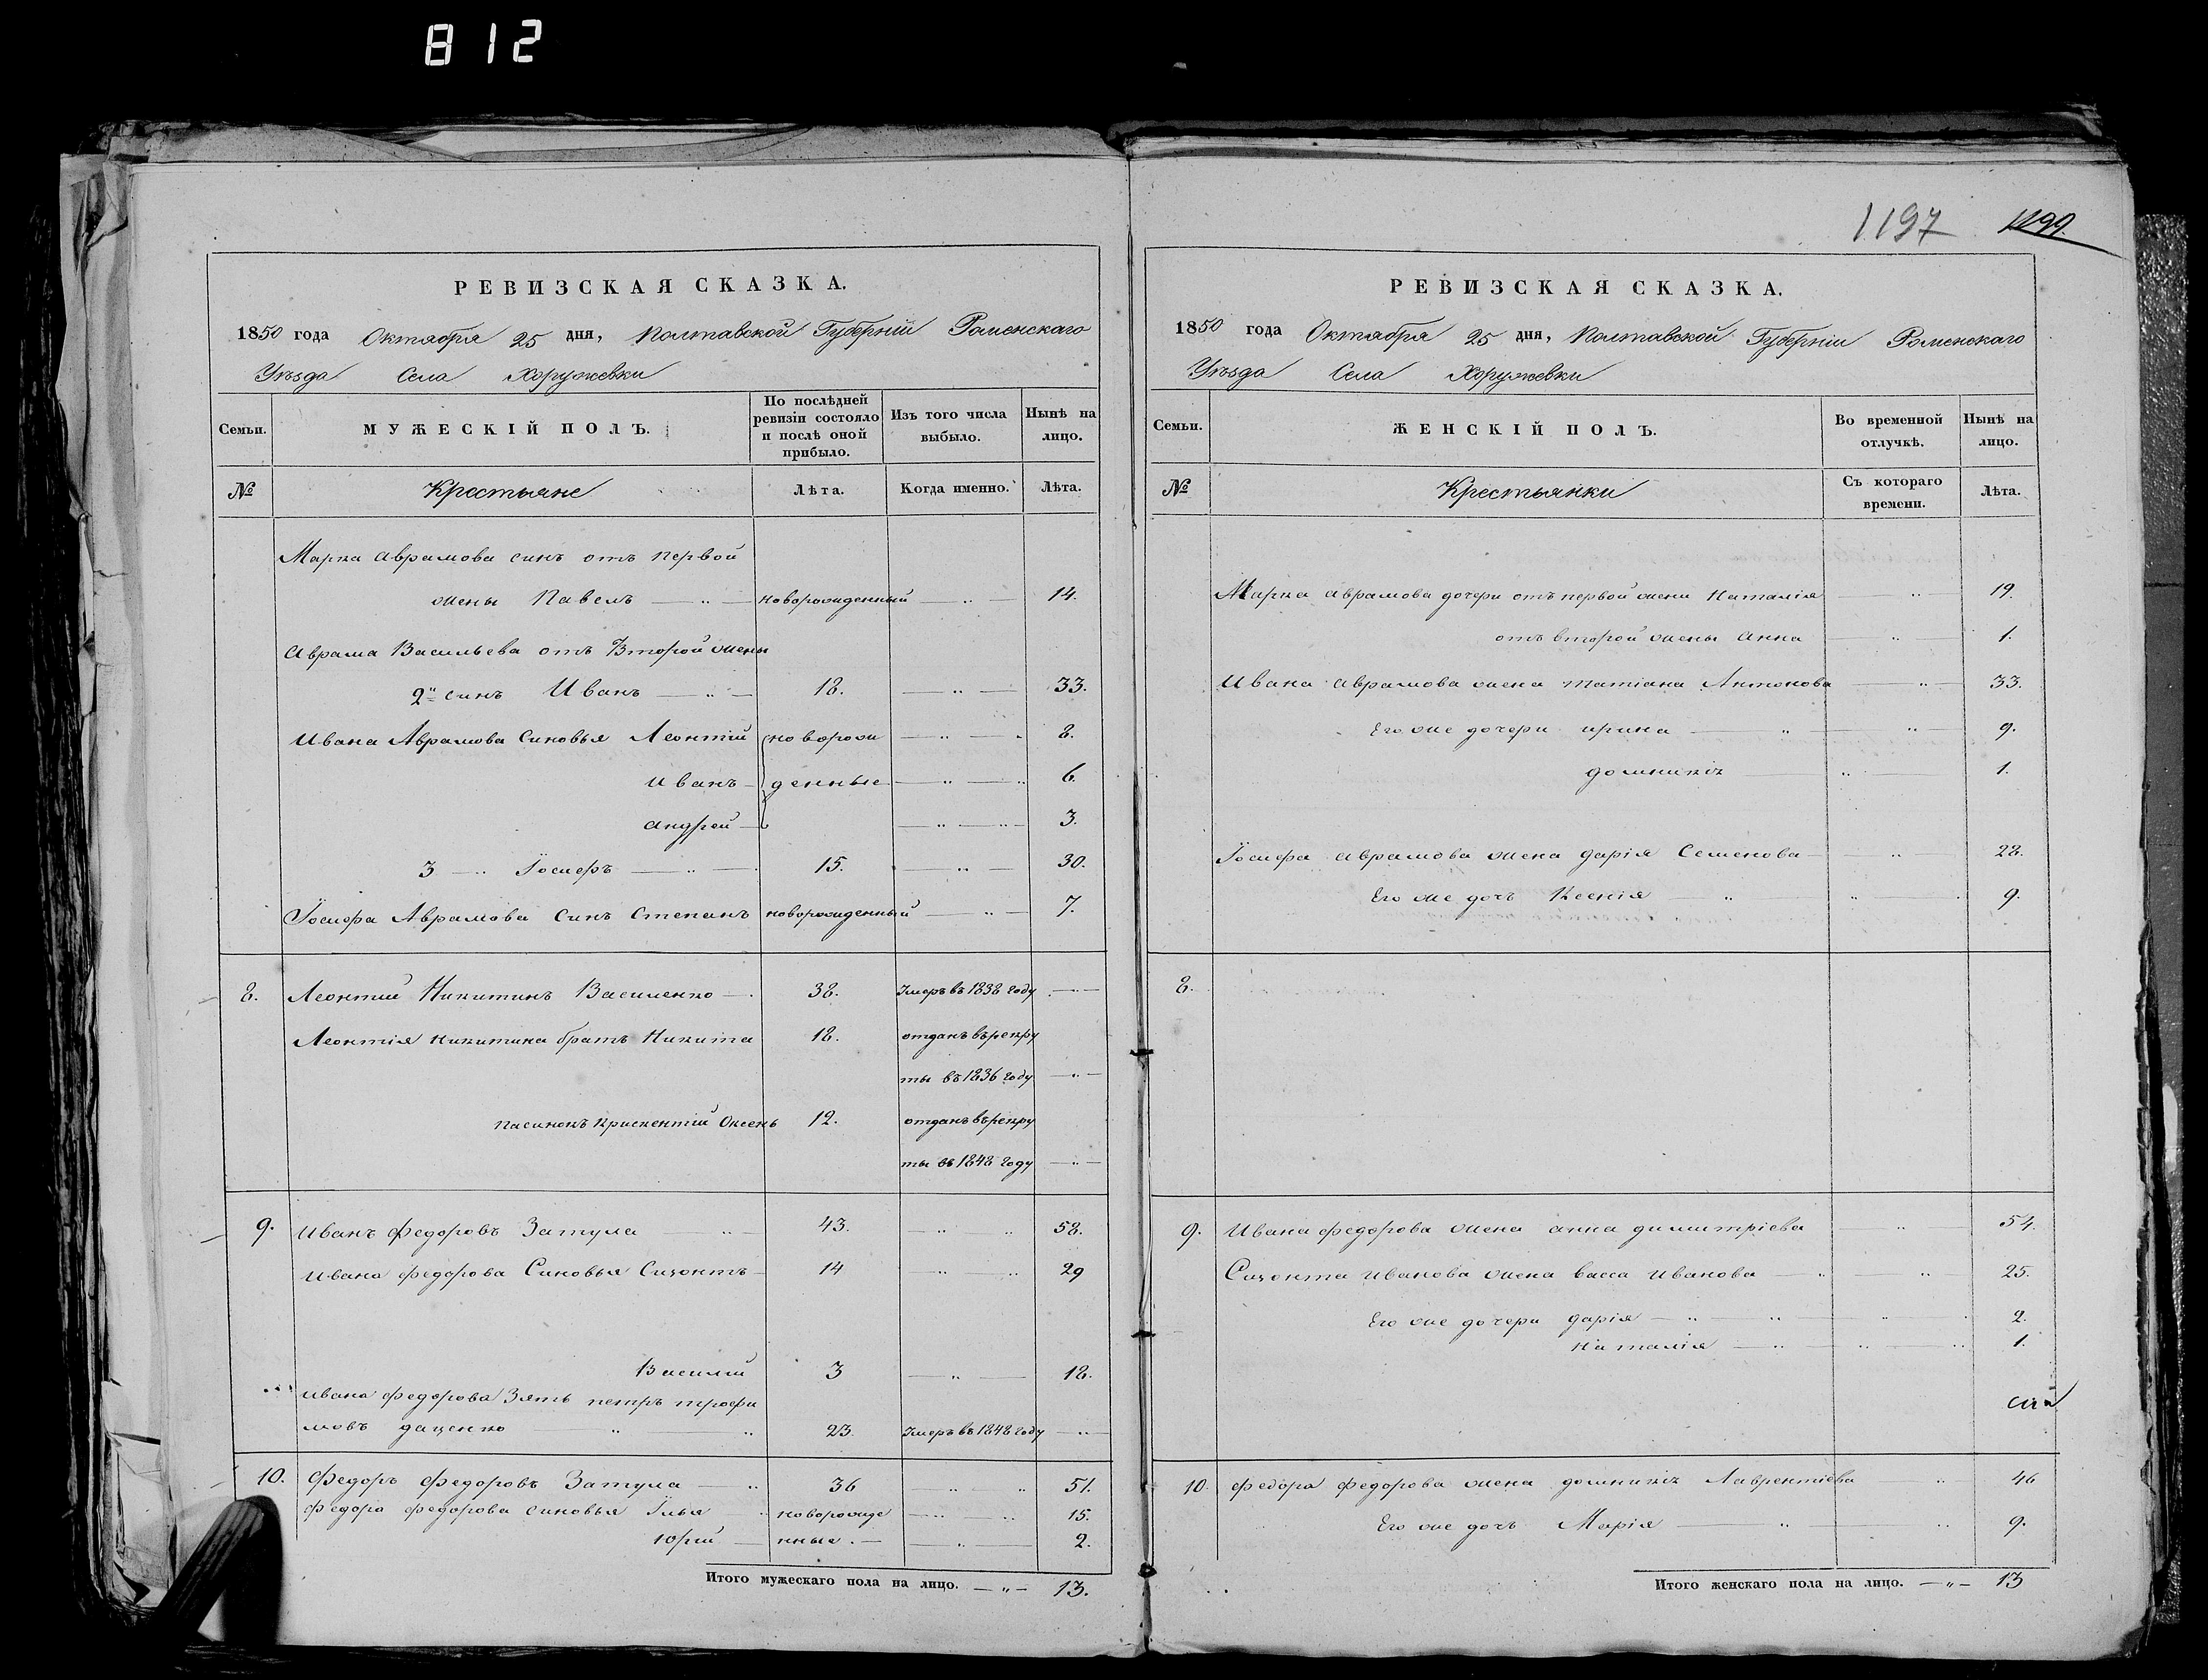 812
1197 1199
РЕВИЗСКАЯ СКАЗКА.
1850 года Октября 25 дня, Полтавской Губерніи Роменскаго
Уѣзда Села Хоружевки
Семьи. МУЖЕСКІЙ ПОЛЪ. По послѣдней ревизіи состояло и послѣ оной прибыло. Изъ того числа выбыло. Нынѣ на лицо.
№ Крестьяне Лѣта. Когда именно. Лѣта.
Марка Аврамова синъ отъ первой
жены Павелъ — " — новорожденный — " — 14.
Аврама Васильева отъ Второй жены
2й синъ Иванъ — " — 18. — " — 33.
Ивана Аврамова Синовья Леонтій новорож — " — 8.
Иванъ — денные — " — 6.
Андрей — — " — 3.
3 — " Іосифъ — " — 15. — " — 30.
Іосифа Аврамова Синъ Степанъ новорожденный — " — 7.
8. Леонтій Никитинъ Василенко — 38. Умеръ въ 1838 году — " —
Леонтія Никитина братъ Никита 18. отданъ въ рекру
ты въ 1836 году — " —
пасинокъ Крискентій Оксень 12. отданъ въ рекру
ты въ 1848 году — " —
9. Иванъ Федоровъ Затула — " — 43. — " " 58.
Ивана Федорова Синовья Сизонтъ — 14 — " " 29
Василій 3 — " — 18.
Ивана Федорова Зять петръ трофи
мовъ даценко — " — " 23. Умеръ въ 1848 году — " —
10. Федоръ Федоровъ Затула — " 36 " " 51.
Федора Федорова синовья Илья — новорожде — " " 15.
Юрій — нные. — — " — 2.
Итого мужескаго пола на лицо. — " — 13.
РЕВИЗСКАЯ СКАЗКА.
1850 года Октября 25 дня, Полтавской Губерніи Роменскаго
Уѣзда Села Хоружевки
Семьи. ЖЕНСКІЙ ПОЛЪ. Во временной отлучкѣ. Нынѣ на лицо.
№ Крестьянки Съ котораго времени. Лѣта.
Марка Аврамова дочери отъ первой жени Наталія — " — 19.
отъ второй жены Анна — " — 1.
Ивана Аврамова жена Татіана Антонова — " — 33.
Его же дочери ирина — " — " — 9.
домникія — " — 1.
Іосифа Аврамова жена дарія Семенова — " — 28.
Его же дочъ Ксенія — " — " 9.
8.
9. Ивана Федорова жена анна димитріева — " — 54.
Сизонта Иванова жена васса Иванова — " " 25.
Его же дочери дарія — " — " " 2.
Наталія — " — " — " 1.
10. Федора Федорова жена домникія Лаврентіева — " 46
Его же дочъ Марія — " — " 9.
Итого женскаго пола на лицо. — " — 13